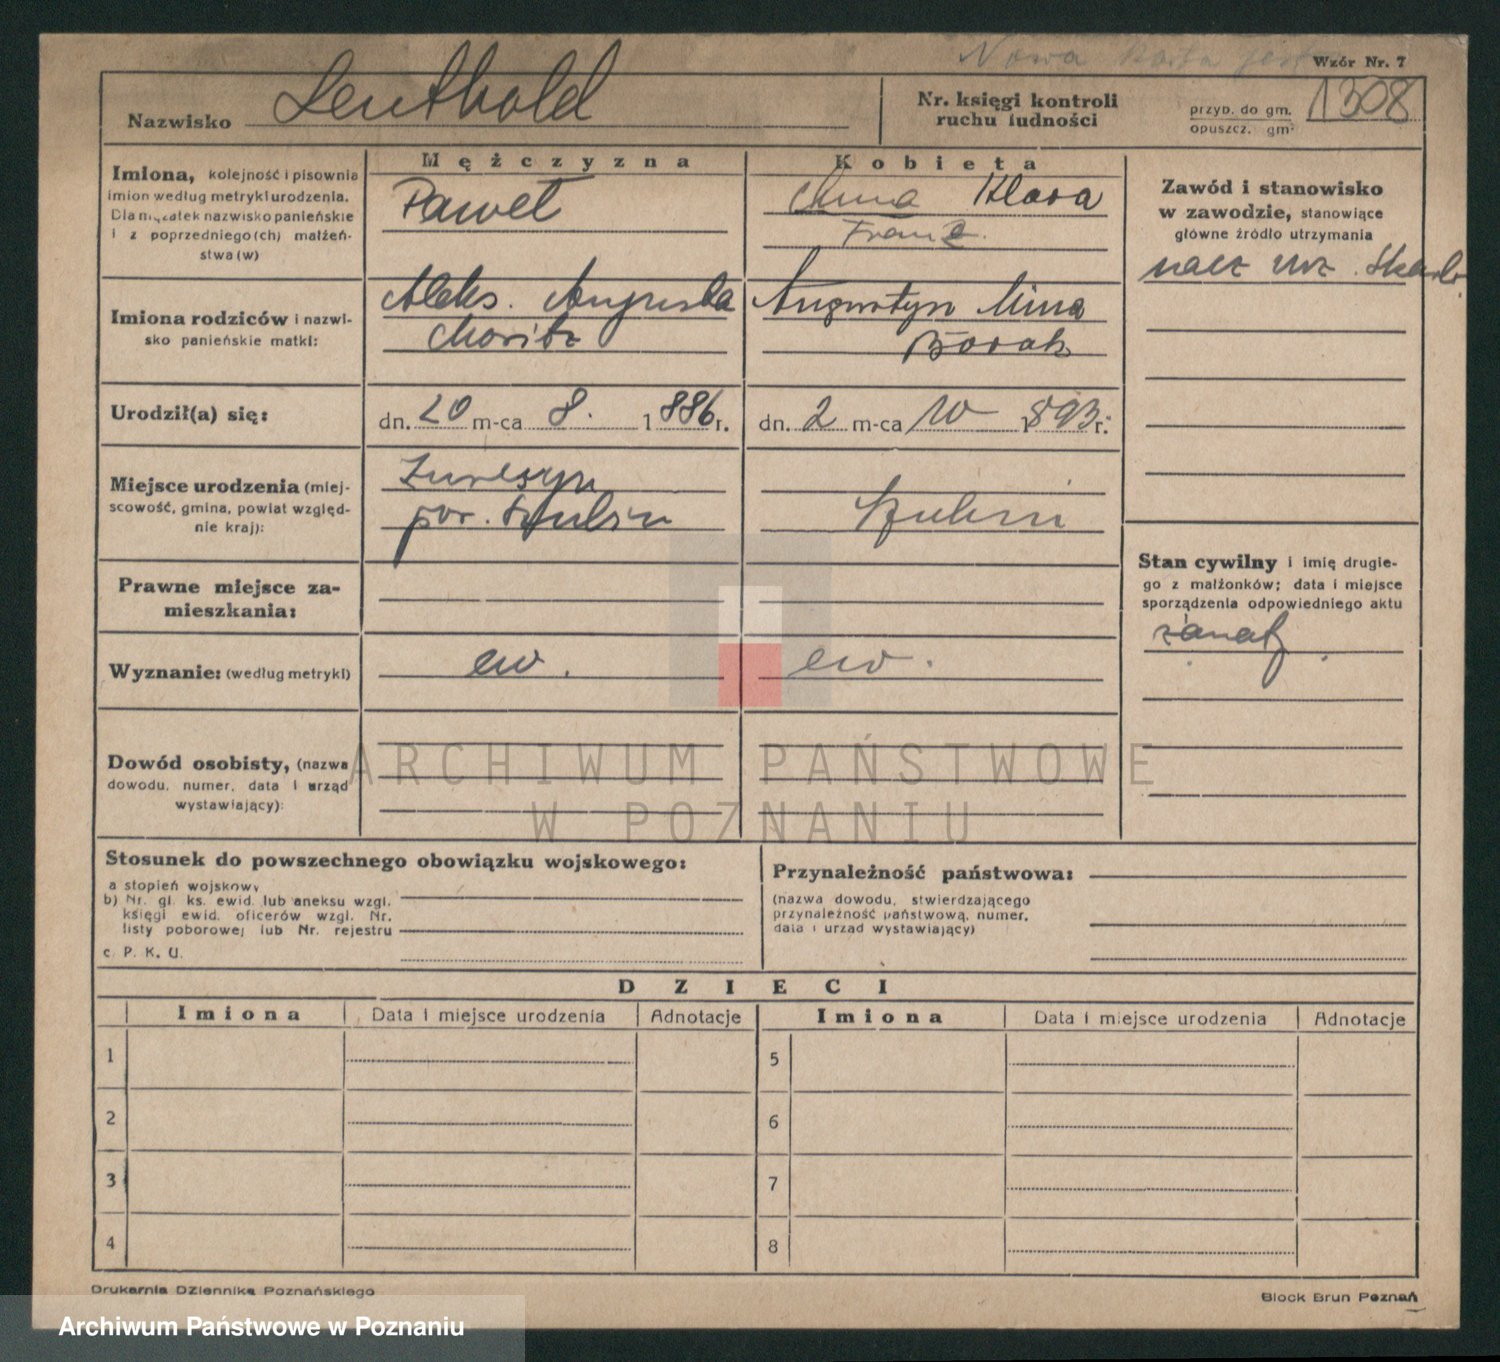 Nowa karta jest
Wzór Nr. 7
Nazwisko Leuthold
Nr. księgi kontroli
ruchu ludności
przyb. do gm.
opuszcz. gm.
1308
Mężczyzna
Kobieta
Imiona, kolejność i pisownia
imion według metryki urodzenia.
Dla mężatek nazwisko panieńskie
i z poprzedniego(ch) małżeń-
stwa(w)
Paweł
Anna Klara
Franz
Zawód i stanowisko
w zawodzie, stanowiące
główne źródło utrzymania
nacz urz. Skarb.
Imiona rodziców i nazwi-
sko panieńskie matki:
Aleks. Augusta
Moritz
Augustyn Mina
Borak
Urodził(a) się:
dn. 20 m-ca 8. 1886 r.
dn. 2 m-ca 10 1893 r.
Miejsce urodzenia (miej-
scowość, gmina, powiat względ-
nie kraj):
pow. Szubin
Szubin
Stan cywilny i imię drugie-
go z małżonków; data i miejsce
sporządzenia odpowiedniego aktu
żonaty
Prawne miejsce za-
mieszkania:
Wyznanie: (według metryki)
ew.
ew.
Dowód osobisty, (nazwa
dowodu, numer, data i urząd
wystawiający):
ARCHIWUM PAŃSTWOWE
W POZNANIU
Stosunek do powszechnego obowiązku wojskowego:
a stopień wojskowy
b) Nr. gł. ks. ewid. lub aneksu wzgl.
księgi ewid. oficerów wzgl. Nr.
listy poborowej lub Nr. rejestru
c. P. K. U.
Przynależność państwowa:
(nazwa dowodu, stwierdzającego
przynależność państwową, numer,
data i urząd wystawiający)
DZIECI
Imiona Data i miejsce urodzenia Adnotacje Imiona Data i miejsce urodzenia Adnotacje
1 5
2 6
3 7
4 8
Drukarnia Dziennika Poznańskiego
Block Brun Poznań
Archiwum Państwowe w Poznaniu